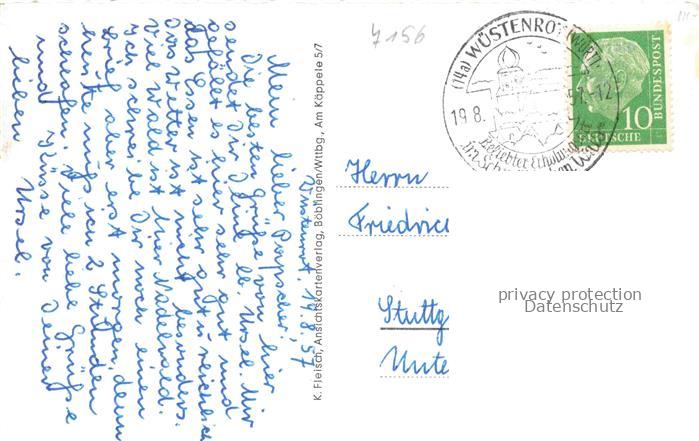 Wüstenrot, 19.8.57
Mein lieber Purpscher!
Die besten Grüße von hier
sendet Dir Deine lb. Ursel. Mir
gefällt es hier sehr gut und
das Essen ist sehr gut u. reichlich
Das Wetter ist nicht besonders.
Viel Wald ist hier Nadelwald.
Ich schreibe Dir noch einen
Brief aber erst morgen, denn
heute muß ich 2 Stunden
schlafen. Viele liebe Grüße
und Küsse von Deiner
lieben Ursel.
K. Fleisch, Ansichtskartenverlag, Böblingen/Wttbg., Am Käppele 5/7
7156
(14a) WÜSTENROT (WÜRTT)
19.8. 57.-12
Beliebter Erholungs
im Schw
en Wal
10
DEUTSCHE
BUNDESPOST
Herrn
Friedric
Stuttg
Unte
privacy protection
Datenschutz